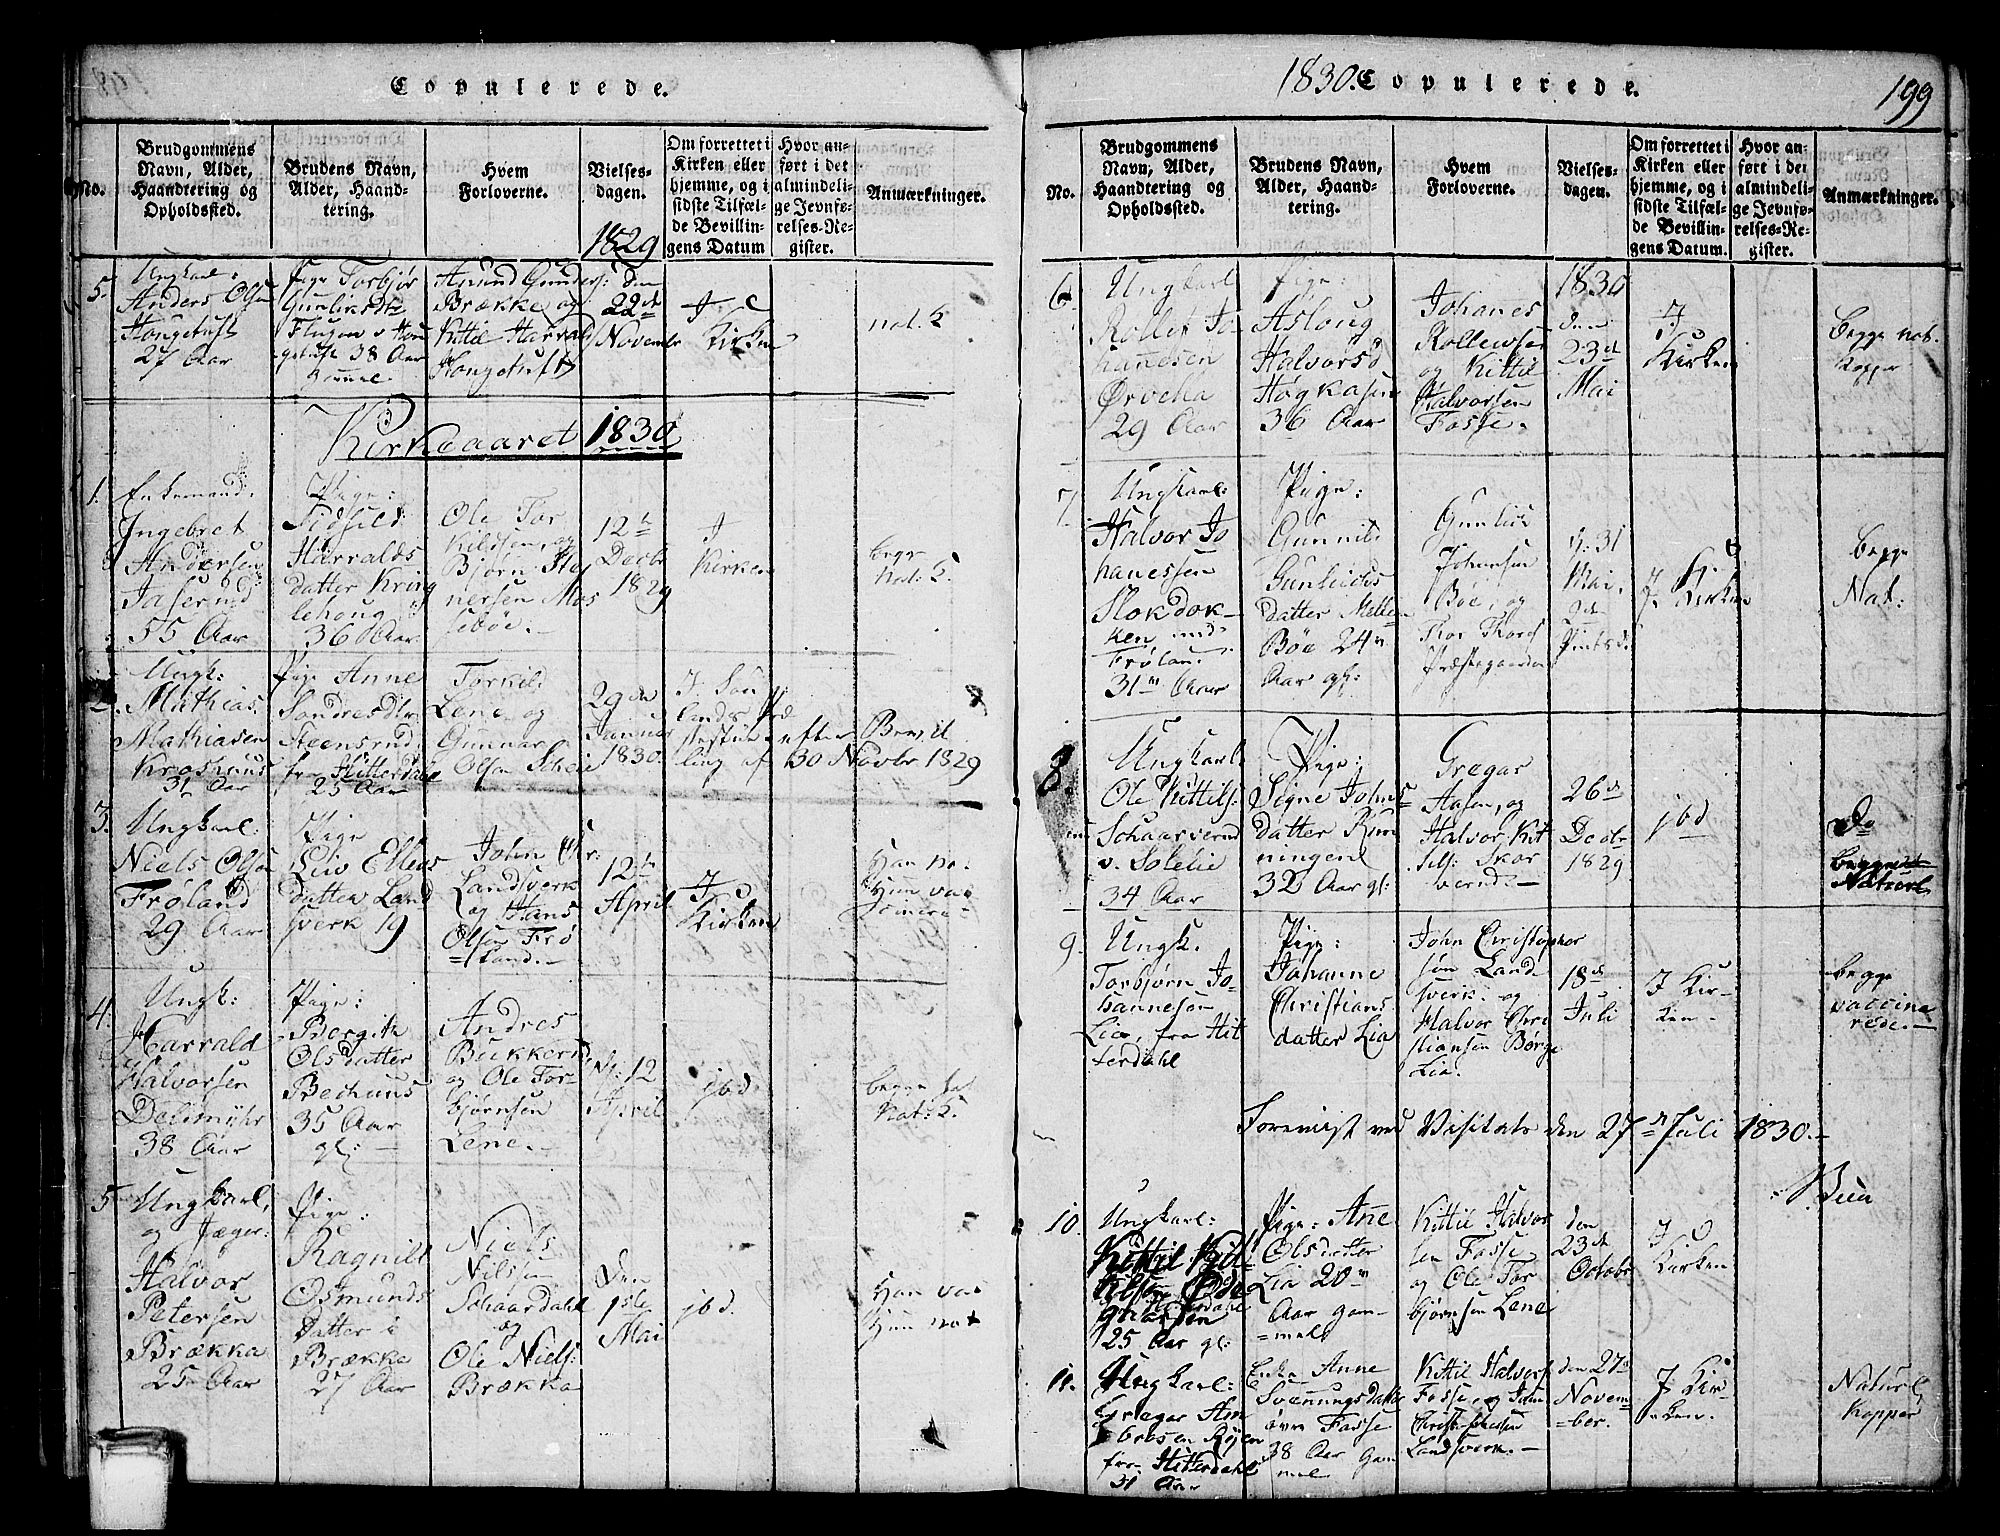 Copulerede.
No.
Brudgommens
Navn, Alder,
Haandtering og
Opholdssted.
Brudens Navn,
Alder, Haand-
tering.
Hvem
Forloverne.
Vielses-
dagen.
1829
Om forrettet i
Kirken eller
hjemme, og i
sidste Tilfæl-
de Bevillin-
gens Datum
Hvor an-
ført i det
almindeli-
ge Jevnfø-
relses-Re-
gister.
Anmærkninger.
5.
Ungkarl:
Anders Olsen
Hongetuft
27 Aar
Pige Torbjør
Gunliksdtr
38 Aar
gammel
Amund Gunders:
Brække og
Kittil Harrald
Hongetuft
den
22de
Novembr
I
Kirken
nat. K
Kirkeaaret 1830
1.
Enkemand:
Ingebret
Andersen
Jaserud
55 Aar
Pige:
Sidsel
Harralds
datter Kring
lehoug
36 Aar
Ole Tor
kildsen, og
Bjørn Stef
nersen Mos
sebøe.
12te
Decbr
1829
I
Kirken
begge
Nat: K.
2.
Ungk:
Mathias
Mathiasen
Kroshuus
31 Aar
Pige Anne
Sondresdtr
Steensrud
fra Hitterdal
25 Aar
Torkild
Lene og
Gunnar
Olsen Scheie
29de
Januar
1830.
I. Sou
lands Præ
stestue efter Bevil
ling af 30 Novbr 1829
3.
Ungkarl:
Niels Olsen
Frøland
29 Aar
Pige
Liv Ellevs
datter Land
sverk 19
John Chr:
Landsverk
og Hans
Olsen Frø
=land.
12te
April
I
Kirken
Han na.
Hun vac
cinere
4.
Ungk:
Harrald
Halvorsen
Delimyhr
38 Aar
Pige:
Bergith
Olsdatter
Bechuus
35 Aar
gl:
Andres
Bukkerud
og Ole Tor-
bjørnsen
Lene.
d: 12
April
ibd.
begge
Nat: K.
5
Ungkarl,
og Jæger:
Halvor
Petersen
Brækka
25 Aar
Pige:
Ragnild
Osmunds
Datter i
Brækka
27 Aar
Niels
Nilsen
Schaardahl
og
Ole Niels:
Brækka
Den
1ste
Mai
ibd.
Han vac
Hun nat
1830. Copulerede.
199
No.
Brudgommens
Navn, Alder,
Haandtering og
Opholdssted.
Brudens Navn,
Alder, Haand-
tering.
Hvem
Forloverne.
Vielses-
dagen.
Om forrettet i
Kirken eller
hjemme, og i
sidste Tilfæl-
de Bevillin-
gens Datum.
Hvor an-
ført i det
almindeli-
ge Jevnfø-
relses-Re-
gister.
Anmærkninger.
6
Ungkarl
Rollef Jo
hanesen
Ørveha
29 Aar
Pige:
Asloug
Halvorsd
Høgkasin
36 Aar
Johanes
Rollewsen
og Kittil
Halvorsen
Fosse.
1830
den
23de
Mai
I
Kirken
Begge nat.
Kopper
7
Ungkarl:
Halvor Jo
hanessen
Slokdok-
ken
Frølan
31 Aar
Pige:
Gunnild
Gunlichs
datter Melle
Bøe 24
Aar gl:
Gunlich
Johansen
Bøe, og
Thor Thors
Præstegaarden
d: 31
Mai,
2den
Pintsd.
I
Kirken
begge
Nat:
8.
Ungkarl
Ole Kittils:
Schaarverud
v. Solelie
34 Aar
Pige:
Signe Johns
datter Run
ningen
32 Aar gl:
Gregar
Aasen, og
Halvor Kit
tils: Skor
verud.
26de
Decbr
1829
ibd
Do
9.
Ungk.
Torbjørn Jo
hannesen
Lia, fra Hit
terdahl
Pige:
Johanne
Christians
datter Lia
John Christopher
søn Land
sverk. og
Halvor Chri
stiansen Børge
Lia.
18de
Juli
I Kir-
ken
begge
vaccine
rede.
Foreviist ved Visitats den 27de Juli 1830.
10
Ungkarl:
Kittil Kit
25 Aar gl:
Pige: Ane
Olsdatter
Lia 20
Aar gam-
=mel
Kittil Halvor
sen Fosse
og Ole Tor
bjørnsen Lene
den
23de
Octobr
I
Kirken
11.
Ungkarl:
Gregar Am
bersen Røjen
fra Hitterdahl
31 Aar
Enke Anne
Svennungsdatter
øvre Fosse
38 Aar gam
mel
Kittil Halvors:
Fosse, og John
Christophersen
Landsverk.
den 27de
Novem
=ber.
I Kir-
ken.
Naturl
Kopper